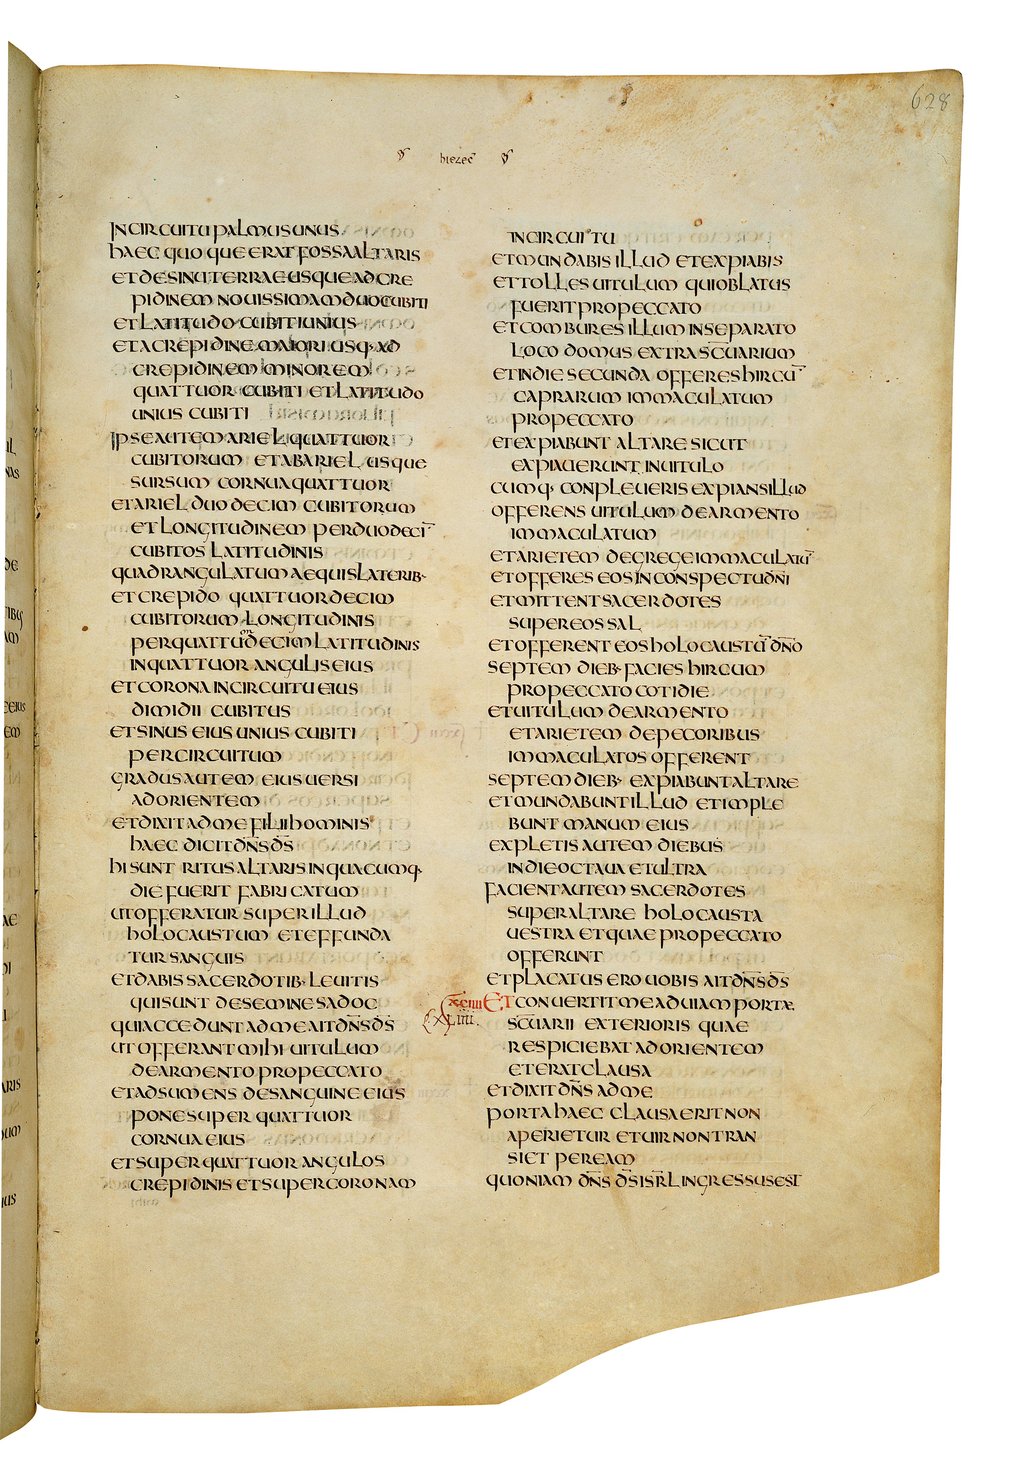 628
hiezec̄
INCIRCUITU PALMUS UNUS
HAEC QUOQUE ERAT FOSSA ALTARIS
ET DE SINU TERRAE USQUE AD CRE
PIDINEM NOUISSIMAM DUO CUBITI
ET LATITUDO CUBITI UNIUS
ET A CREPIDINE MAIORI USQ· AD
CREPIDINEM MINOREM
QUATTUOR CUBITI ET LATITUDO
UNIUS CUBITI
IPSE AUTEM ARIEL QUATTUOR
CUBITORUM ET AB ARIEL USQUE
SURSUM CORNUA QUATTUOR
ET ARIEL DUODECIM CUBITORUM
ET LONGITUDINEM PER DUODECI̅
CUBITOS LATITUDINIS
QUADRANGULATUM AEQUIS LATERIB·
ET CREPIDO QUATTUORDECIM
CUBITORUM LONGITUDINIS
PER QUATTUORDECIM LATITUDINIS
IN QUATTUOR ANGULIS EIUS
ET CORONA IN CIRCUITU EIUS
DIMIDII CUBITUS
ET SINUS EIUS UNIUS CUBITI
PER CIRCUITUM
GRADUS AUTEM EIUS UERSI
AD ORIENTEM
ET DIXIT AD ME FILII HOMINIS
HAEC DICIT DN̅S DS̅
HI SUNT RITUS ALTARIS IN QUACUMQ·
DIE FUERIT FABRICATUM
UT OFFERATUR SUPER ILLUD
HOLOCAUSTUM ET EFFUNDA
TUR SANGUIS
ET DABIS SACERDOTIB· LEUITIS
QUI SUNT DE SEMINE SADOC
QUI ACCEDUNT AD ME AIT DN̅S DS̅
UT OFFERANT MIHI UITULUM
DE ARMENTO PRO PECCATO
ET ADSUMENS DE SANGUINE EIUS
PONE SUPER QUATTUOR
CORNUA EIUS
ET SUPER QUATTUOR ANGULOS
CREPIDINIS ET SUPER CORONAM
IN CIRCUITU
ET MUNDABIS ILLUD ET EXPIABIS
ET TOLLES UITULUM QUI OBLATUS
FUERIT PRO PECCATO
ET COMBURES ILLUM IN SEPARATO
LOCO DOMUS EXTRA SC̅UARIUM
ET IN DIE SECUNDA OFFERES HIRCU̅
CAPRARUM IMMACULATUM
PRO PECCATO
ET EXPIABUNT ALTARE SICUT
EXPIAUERUNT IN UITULO
CUMQ· CONPLEUERIS EXPIANS ILLUD
OFFERENS UITULUM DE ARMENTO
IMMACULATUM
ET ARIETEM DE GREGE IMMACULATU̅
ET OFFERES EOS IN CONSPECTU DN̅I
ET MITTENT SACERDOTES
SUPER EOS SAL
ET OFFERENT EOS HOLOCAUSTU̅ DN̅O
SEPTEM DIEB· FACIES HIRCUM
PRO PECCATO COTIDIE
ET UITULUM DE ARMENTO
ET ARIETEM DE PECORIBUS
IMMACULATOS OFFERENT
SEPTEM DIEB· EXPIABUNT ALTARE
ET MUNDABUNT ILLUD ET IMPLE
BUNT MANUM EIUS
EXPLETIS AUTEM DIEBUS
IN DIE OCTAUA ET ULTRA
FACIENT AUTEM SACERDOTES
SUPER ALTARE HOLOCAUSTA
UESTRA ET QUAE PRO PECCATO
OFFERUNT
ET PLACATUS ERO UOBIS AIT DN̅S DS̅
XCIIII ET CONUERTIT ME AD UIAM PORTAE
XLIIII. SC̅UARII EXTERIORIS QUAE
RESPICIEBAT AD ORIENTEM
ET ERAT CLAUSA
ET DIXIT DN̅S AD ME
PORTA HAEC CLAUSA ERIT NON
APERIETUR ET UIR NON TRAN
SIET PER EAM
QUONIAM DN̅S DS̅ ISRL̅ INGRESSUS EST